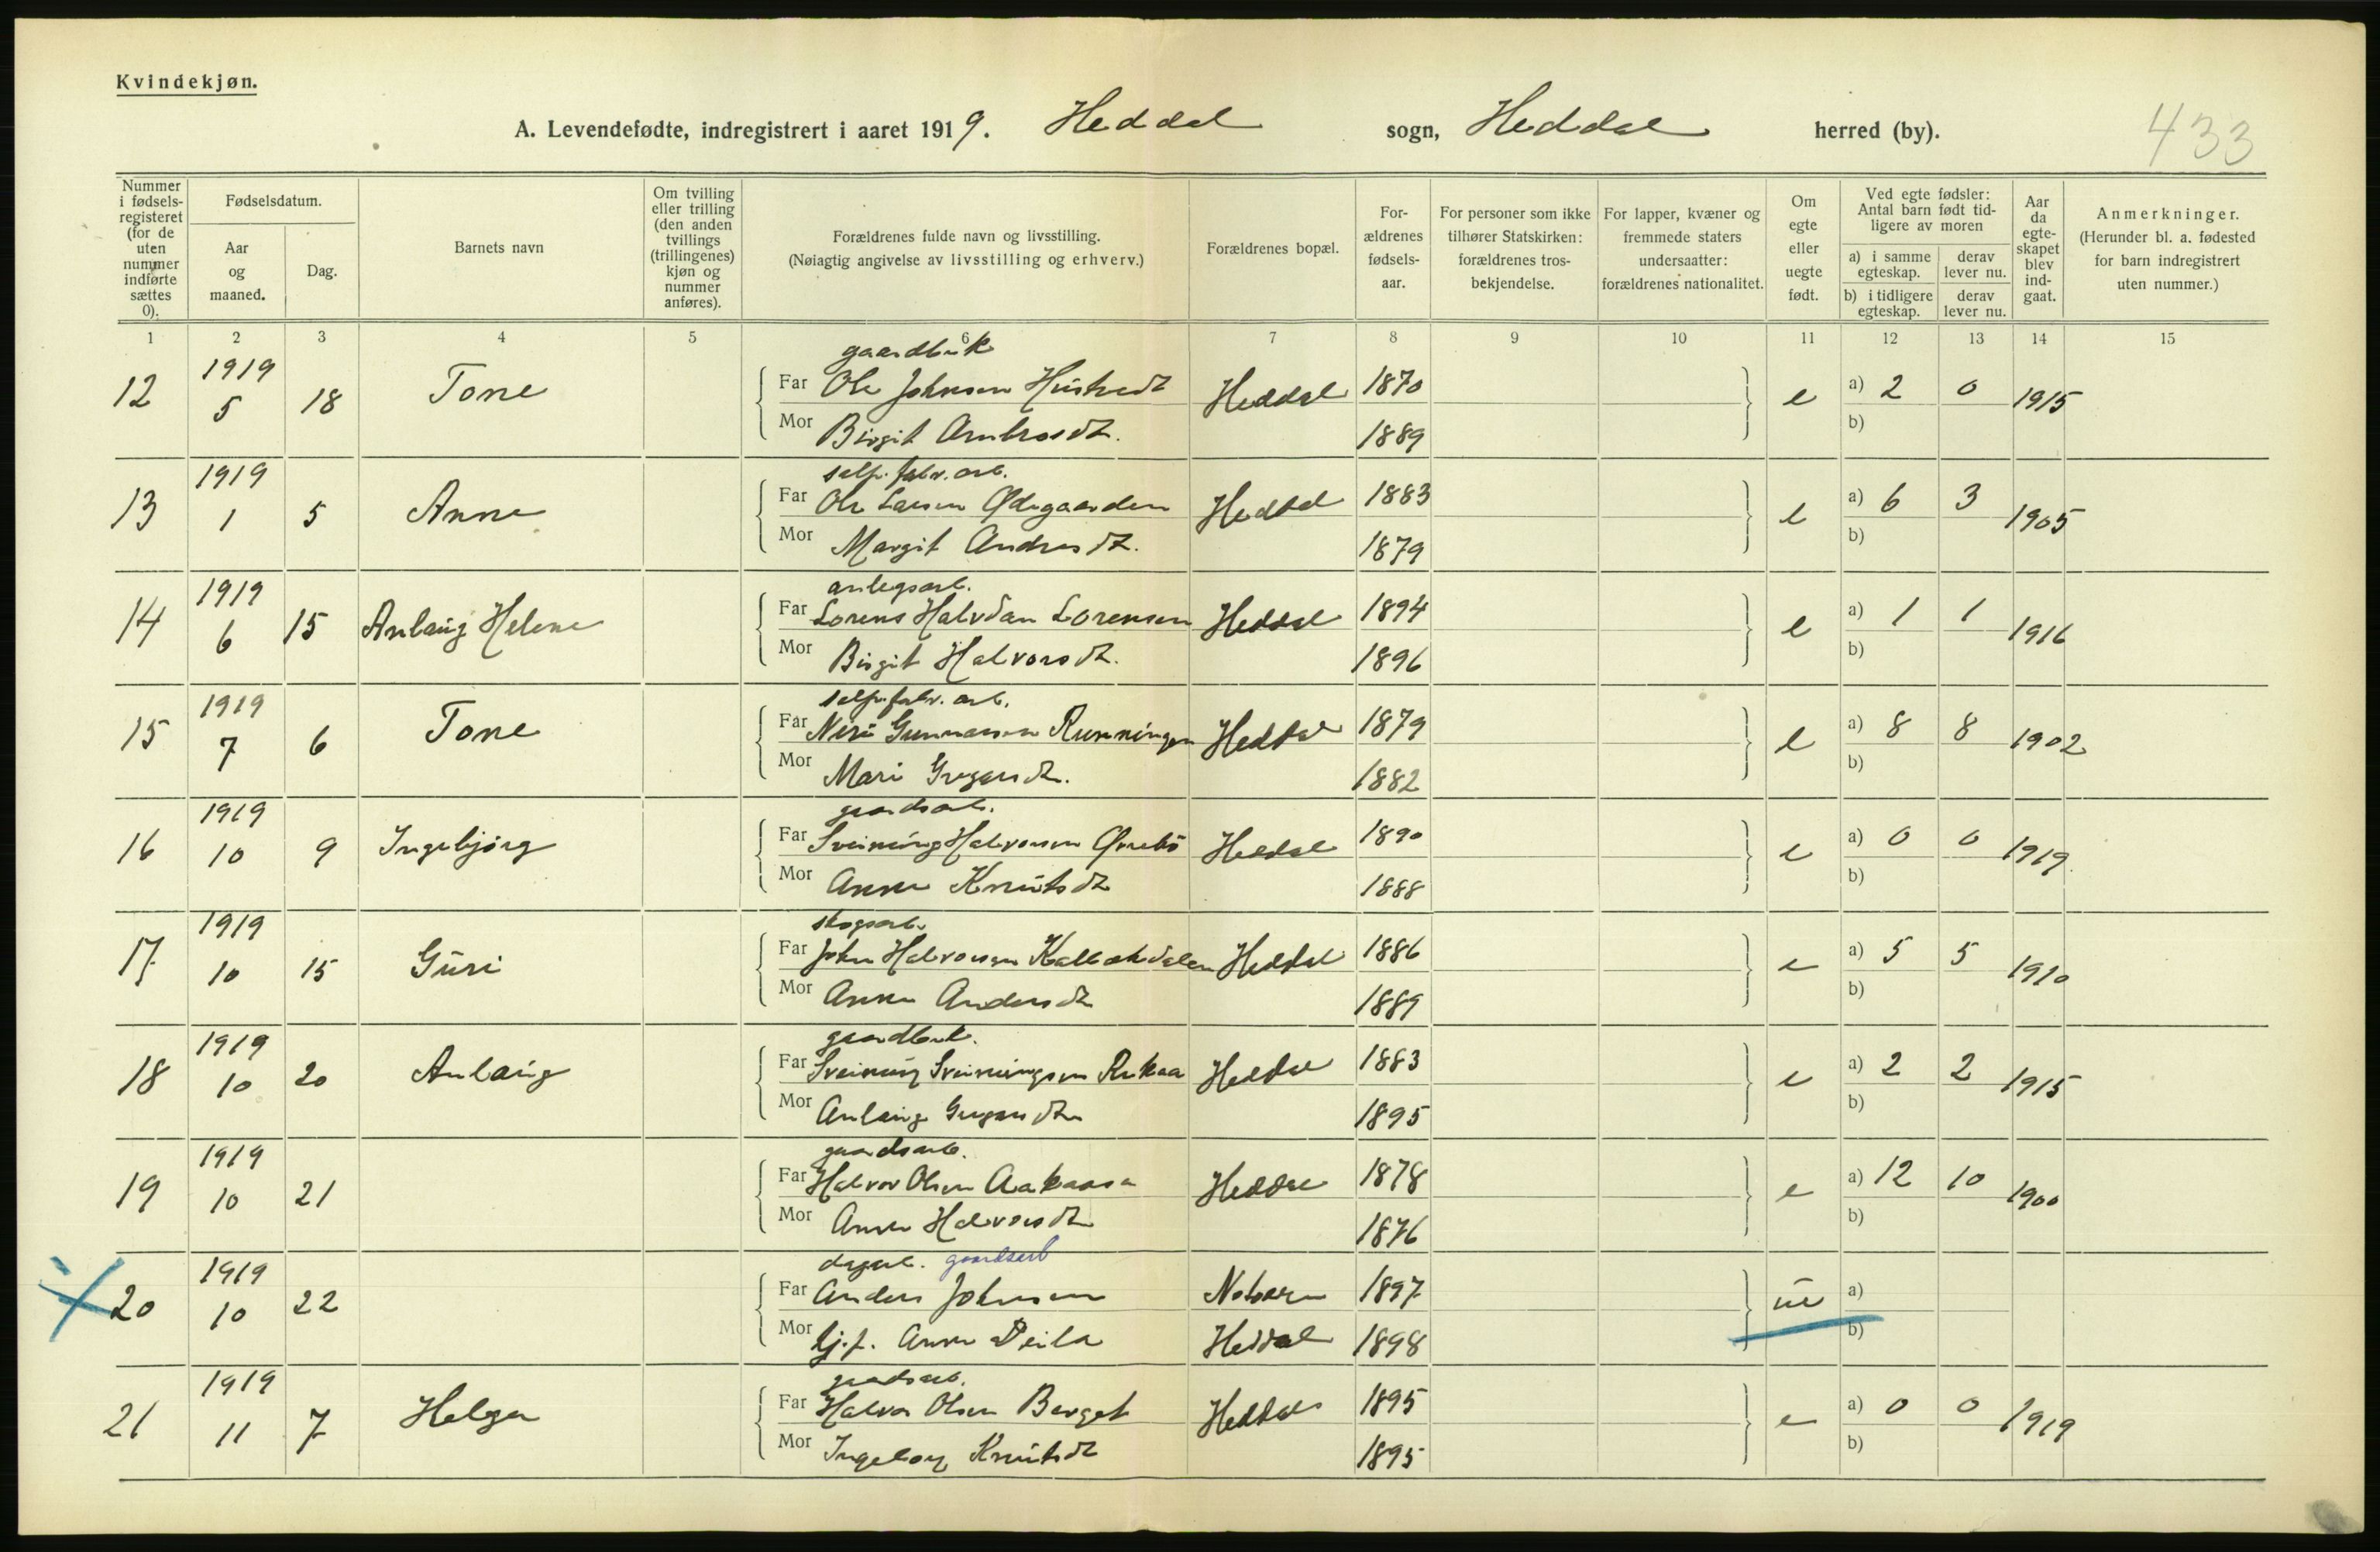 Kvindekjøn.
A. Levendefødte, indregistrert i aaret 1919. Heddal sogn, Heddal herred (by).
433
Nummer i fødsels-registeret (for de uten nummer indførte sættes 0).
Fødselsdatum.
Aar og maaned.
Dag.
Barnets navn
Om tvilling eller trilling (den anden tvillings (trillingenes) kjøn og nummer anføres).
Forældrenes fulde navn og livsstilling.
(Nøiagtig angivelse av livsstilling og erhverv.)
Forældrenes bopæl.
For-ældrenes fødsels-aar.
For personer som ikke tilhører Statskirken: forældrenes tros-bekjendelse.
For lapper, kvæner og fremmede staters undersaatter: forældrenes nationalitet.
Om egte eller uegte født.
Ved egte fødsler: Antal barn født tid-ligere av moren
a) i samme egteskap.
derav lever nu.
b) i tidligere egteskap.
derav lever nu.
Aar da egte-skapet blev ind-gaat.
Anmerkninger.
(Herunder bl. a. fødested for barn indregistrert uten nummer.)
1 2 3 4 5 6 7 8 9 10 11 12 13 14 15
gaardbruk
12 1919 5 18 Tone Far Ole Johnsen Heddal 1870 e a) 2 0 1915
Mor Birgit 1889 b)
selfr. fabr. arb.
13 1919 1 5 Anne Far Ole Larsen Ødegaarden Heddal 1883 e a) 6 3 1905
Mor Margit Andresdt. 1879 b)
anlegsarb.
14 1919 6 15 Anlaug Helene Far Lorens Halvdan Lorensen Heddal 1894 e a) 1 1 1916
Mor Birgit Halvorsdt. 1896 b)
fabr. arb.
15 1919 7 6 Tone Far Gunnarsen Runningen Heddal 1879 e a) 8 8 1902
Mor Mari Gregersdt. 1882 b)
gaardsarb.
16 1919 10 9 Ingebjørg Far Sveinung Halvorsen Heddal 1890 e a) 0 0 1919
Mor Anne Knutsdt 1888 b)
skogsarb.
17 1919 10 15 Guri Far John Halvorsen Kalbækdalen Heddal 1886 e a) 5 5 1910
Mor Anne Andersdt 1889 b)
gaardbruk.
18 1919 10 20 Anlaug Far Sveinung Sveinungsen Heddal 1883 e a) 2 2 1915
Mor Anlaug Gregersdt 1895 b)
gaardsarb.
19 1919 10 21 Far Halvor Olsen Heddal 1878 e a) 12 10 1900
Mor Anne Halvorsdt 1876 b)
dagarb. gaardsarb
20 1919 10 22 Far Anders Johnsen 1897 ue a)
Mor tj.p. Anne Heddal 1898 b)
gaardsarb.
21 1919 11 7 Helga Far Halvor Olsen Berget Heddal 1895 e a) 0 0 1919
Mor Ingeborg Knutsdt 1895 b)